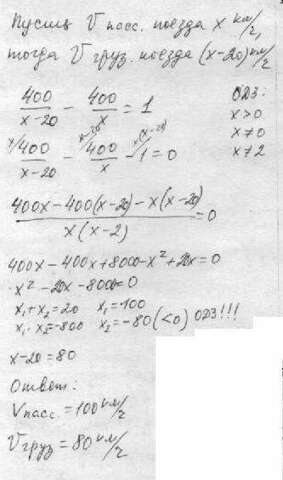 Пусть V пасс. поезда x км/ч,
тогда V груз. поезда (x-20) км/ч
400/(x-20) - 400/x = 1
ОДЗ:
x>0
x≠0
x≠2
x/ 400/(x-20) - x-20/ 400/x - x(x-20)/ 1 = 0
(400x-400(x-20)-x(x-20))/(x(x-2)) = 0
400x-400x+8000-x²+20x=0
x²-20x-8000=0
x₁+x₂=20 x₁=100
x₁·x₂=-800 x₂=-80 (<0) ОДЗ!!!
x-20=80
Ответ:
Vпасс.=100 км/ч
Vгруз=80 км/ч